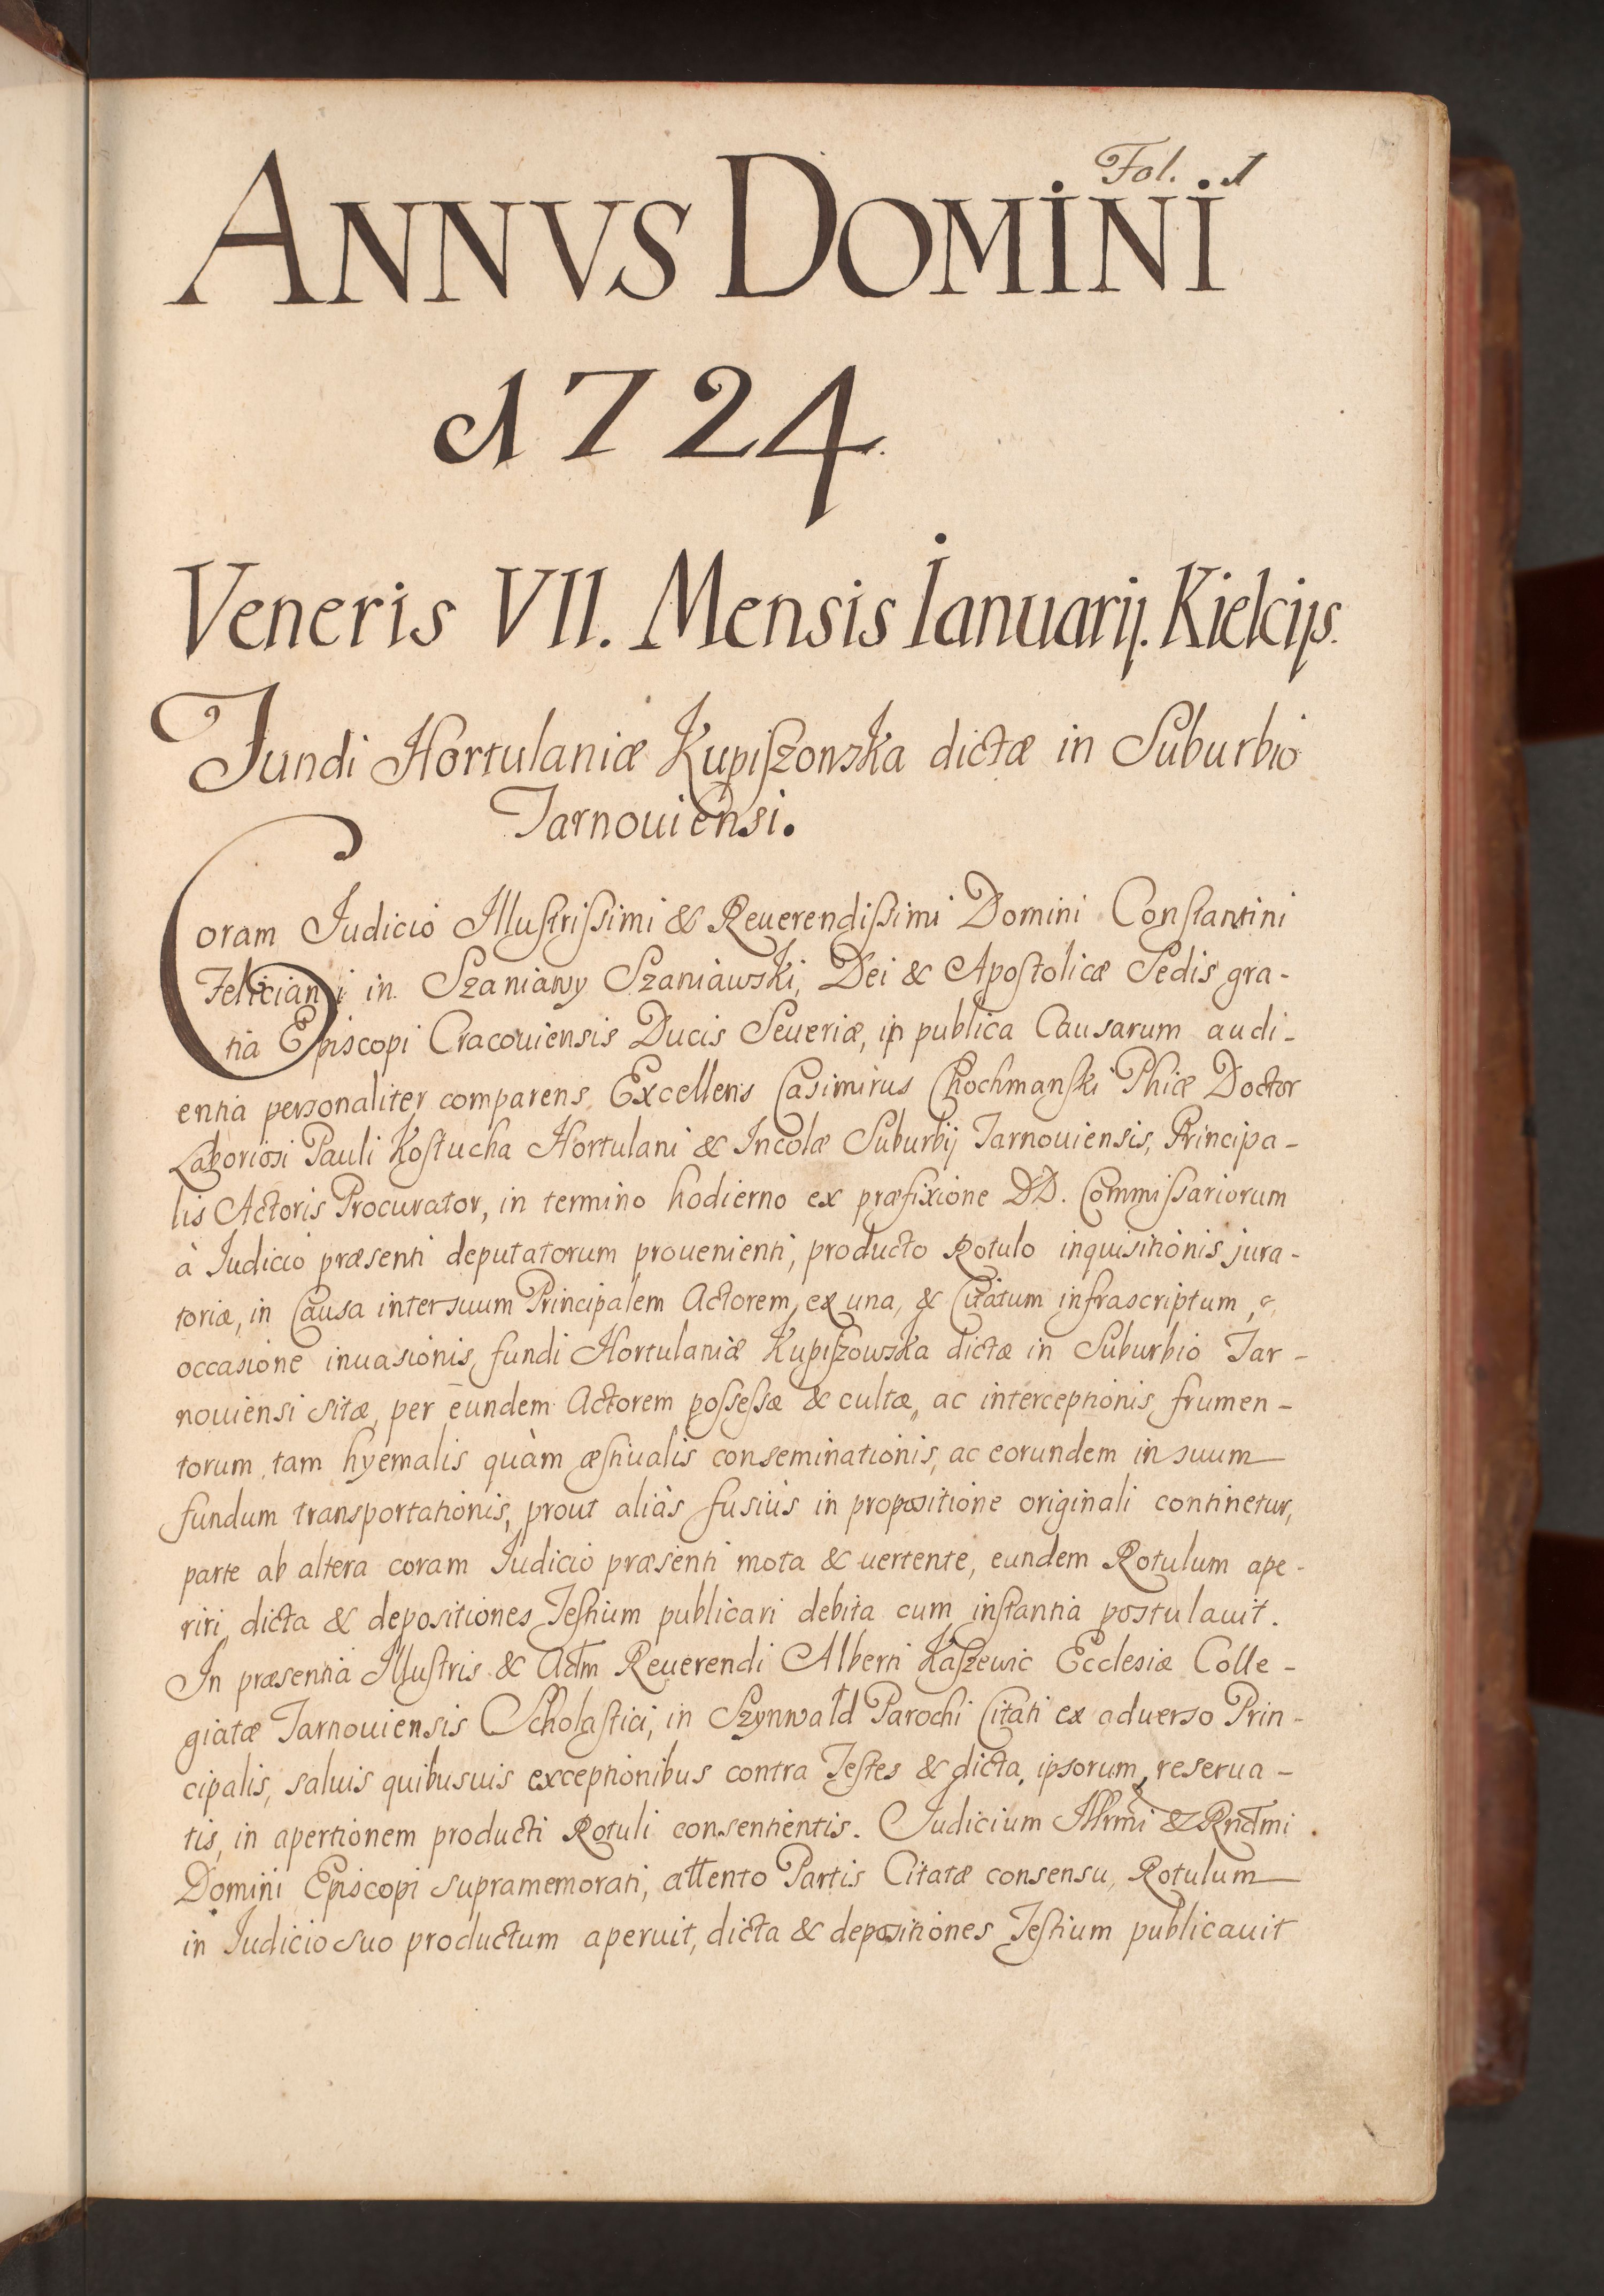 Fol. 1
ANNVS DOMINI
1724.
Veneris VII. Mensis Ianuarij. Kielcijs.
Fundi Hortulaniæ Kupiszowska dictæ in Suburbio
Tarnouiensi.
Coram Judicio Illustrissimi & Reuerendissimi Domini Constantini
Feliciani in Szaniawy Szaniawski, Dei & Apostolicæ Sedis gra-
tia Episcopi Cracouiensis Ducis Seueriæ, in publica Causarum audi-
entia personaliter comparens Excellens Casimirus Chochmanski Phiæ Doctor
Laboriosi Pauli Kostucha Hortulani & Incolæ Suburbij Tarnouiensis, Principa-
lis Actoris Procurator, in termino hodierno ex præfixione DD. Commissariorum
à Judicio præsenti deputatorum prouenienti, producto Rotulo inquisitionis jura-
toriæ, in Causa inter suum Principalem Actorem, ex una, & Citatum infrascriptum,
occasione inuasionis fundi Hortulaniæ Kupiszowska dictæ in Suburbio Tar-
nouiensi sitæ, per eundem Actorem possessæ & cultæ, ac interceptionis frumen-
torum tam hyemalis quàm æstiualis conseminationis, ac eorundem in suum
fundum transportationis, prout aliàs fusiùs in propositione originali continetur,
parte ab altera coram Judicio præsenti mota & uertente, eundem Rotulum ape-
riri, dicta & depositiones Testium publicari debita cum instantia postulauit.
In præsentia Illustris & Adm Reuerendi Alberti Kaszewic Ecclesiæ Colle-
giatæ Tarnouiensis Scholastici, in Szynwałd Parochi Citati ex aduerso Prin-
cipalis, saluis quibusuis exceptionibus contra Testes & dicta ipsorum, reserua-
tis, in apertionem producti Rotuli consentientis. Judicium Illrmi & Rndmi
Domini Episcopi supramemorati, attento Partis Citatæ consensu, Rotulum
in Judicio suo productum aperuit, dicta & depositiones Testium publicauit